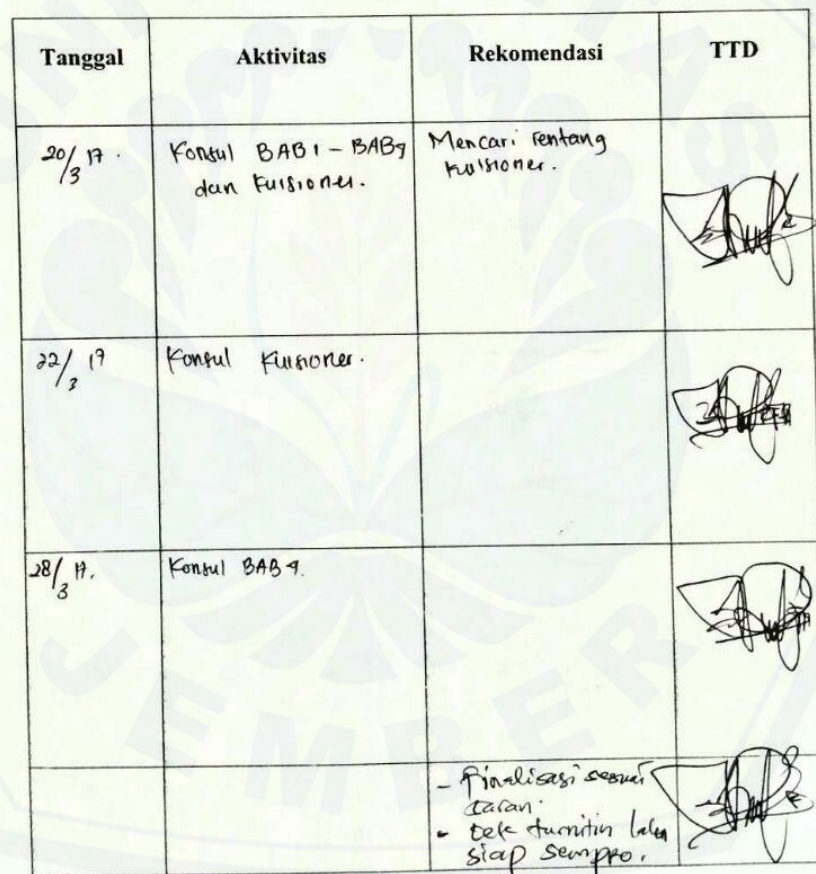 Tanggal Aktivitas Rekomendasi TTD
20/3 17. Konsul BAB 1 - BAB 4 Mencari rentang
dan kuisioner. kuisioner.
22/3 17 Konsul kuisioner.
28/3 17. Konsul BAB 4.
- Finalisasi sesuai
saran.
- Cek turnitin lalu
siap sempro.
JEMBER